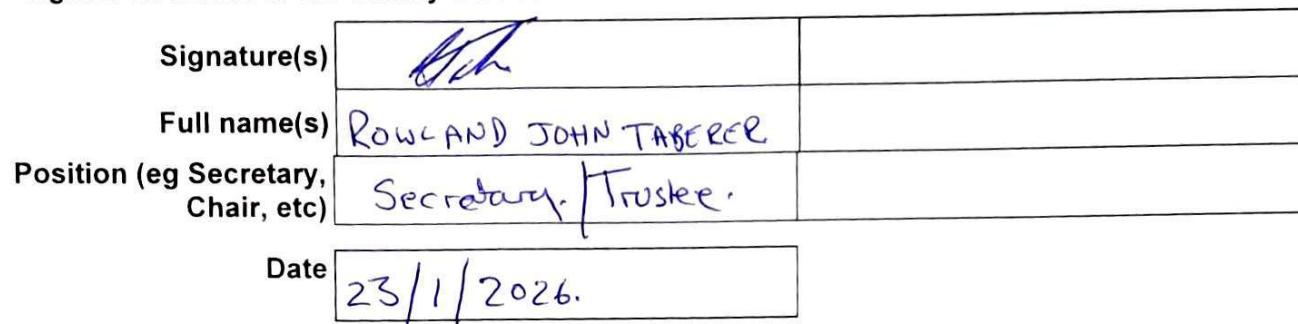 Signature(s)
Full name(s) ROWLAND JOHN TABERER
Position (eg Secretary, Secretary. / Trustee.
Chair, etc)
Date 23/1/2026.